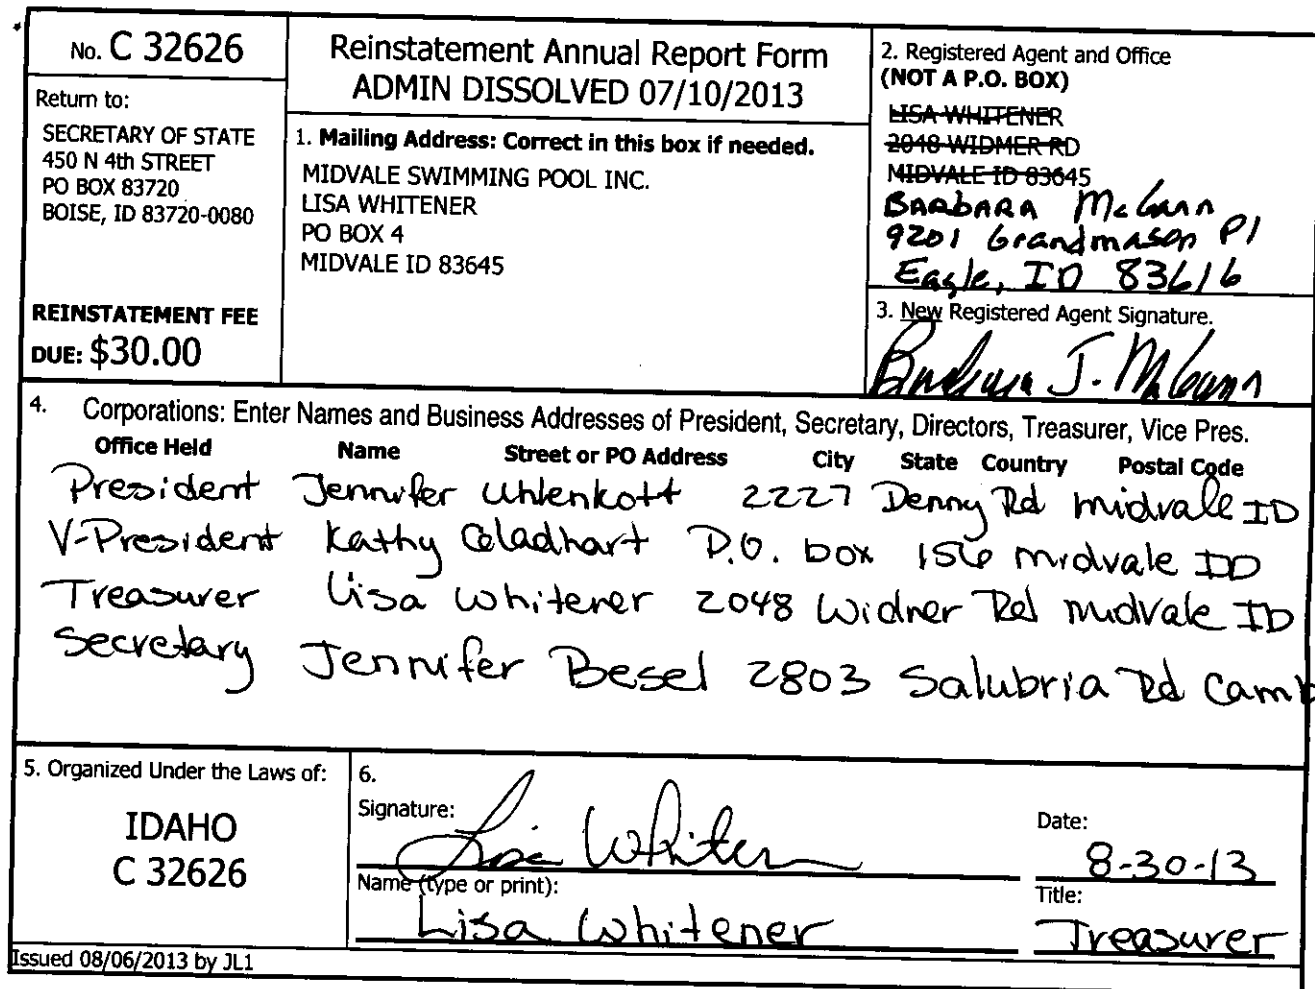 No. C 32626
Return to:
SECRETARY OF STATE
450 N 4th STREET
PO BOX 83720
BOISE, ID 83720-0080
REINSTATEMENT FEE
DUE: $30.00
Reinstatement Annual Report Form
ADMIN DISSOLVED 07/10/2013
1. Mailing Address: Correct in this box if needed.
MIDVALE SWIMMING POOL INC.
LISA WHITENER
PO BOX 4
MIDVALE ID 83645
2. Registered Agent and Office
(NOT A P.O. BOX)
LISA WHITENER
2048 WIDMER RD
MIDVALE ID 83645
BARBARA McGann
9201 Grandmason Pl
Eagle, ID 83616
3. New Registered Agent Signature.
Barbara J. McGann
4. Corporations: Enter Names and Business Addresses of President, Secretary, Directors, Treasurer, Vice Pres.
Office Held Name Street or PO Address City State Country Postal Code
President Jennifer Uhlenkott 2227 Denny Rd midvale ID
V-President Kathy P.O. box 156 midvale ID
Treasurer Lisa Whitener 2048 Widner Rd midvale ID
Secretary Jennifer Besel 2803 Salubria Rd Camb
5. Organized Under the Laws of:
IDAHO
C 32626
6.
Signature:
Lisa Whitener
Date:
8-30-13
Name (type or print):
Lisa Whitener
Title:
Treasurer
Issued 08/06/2013 by JL1